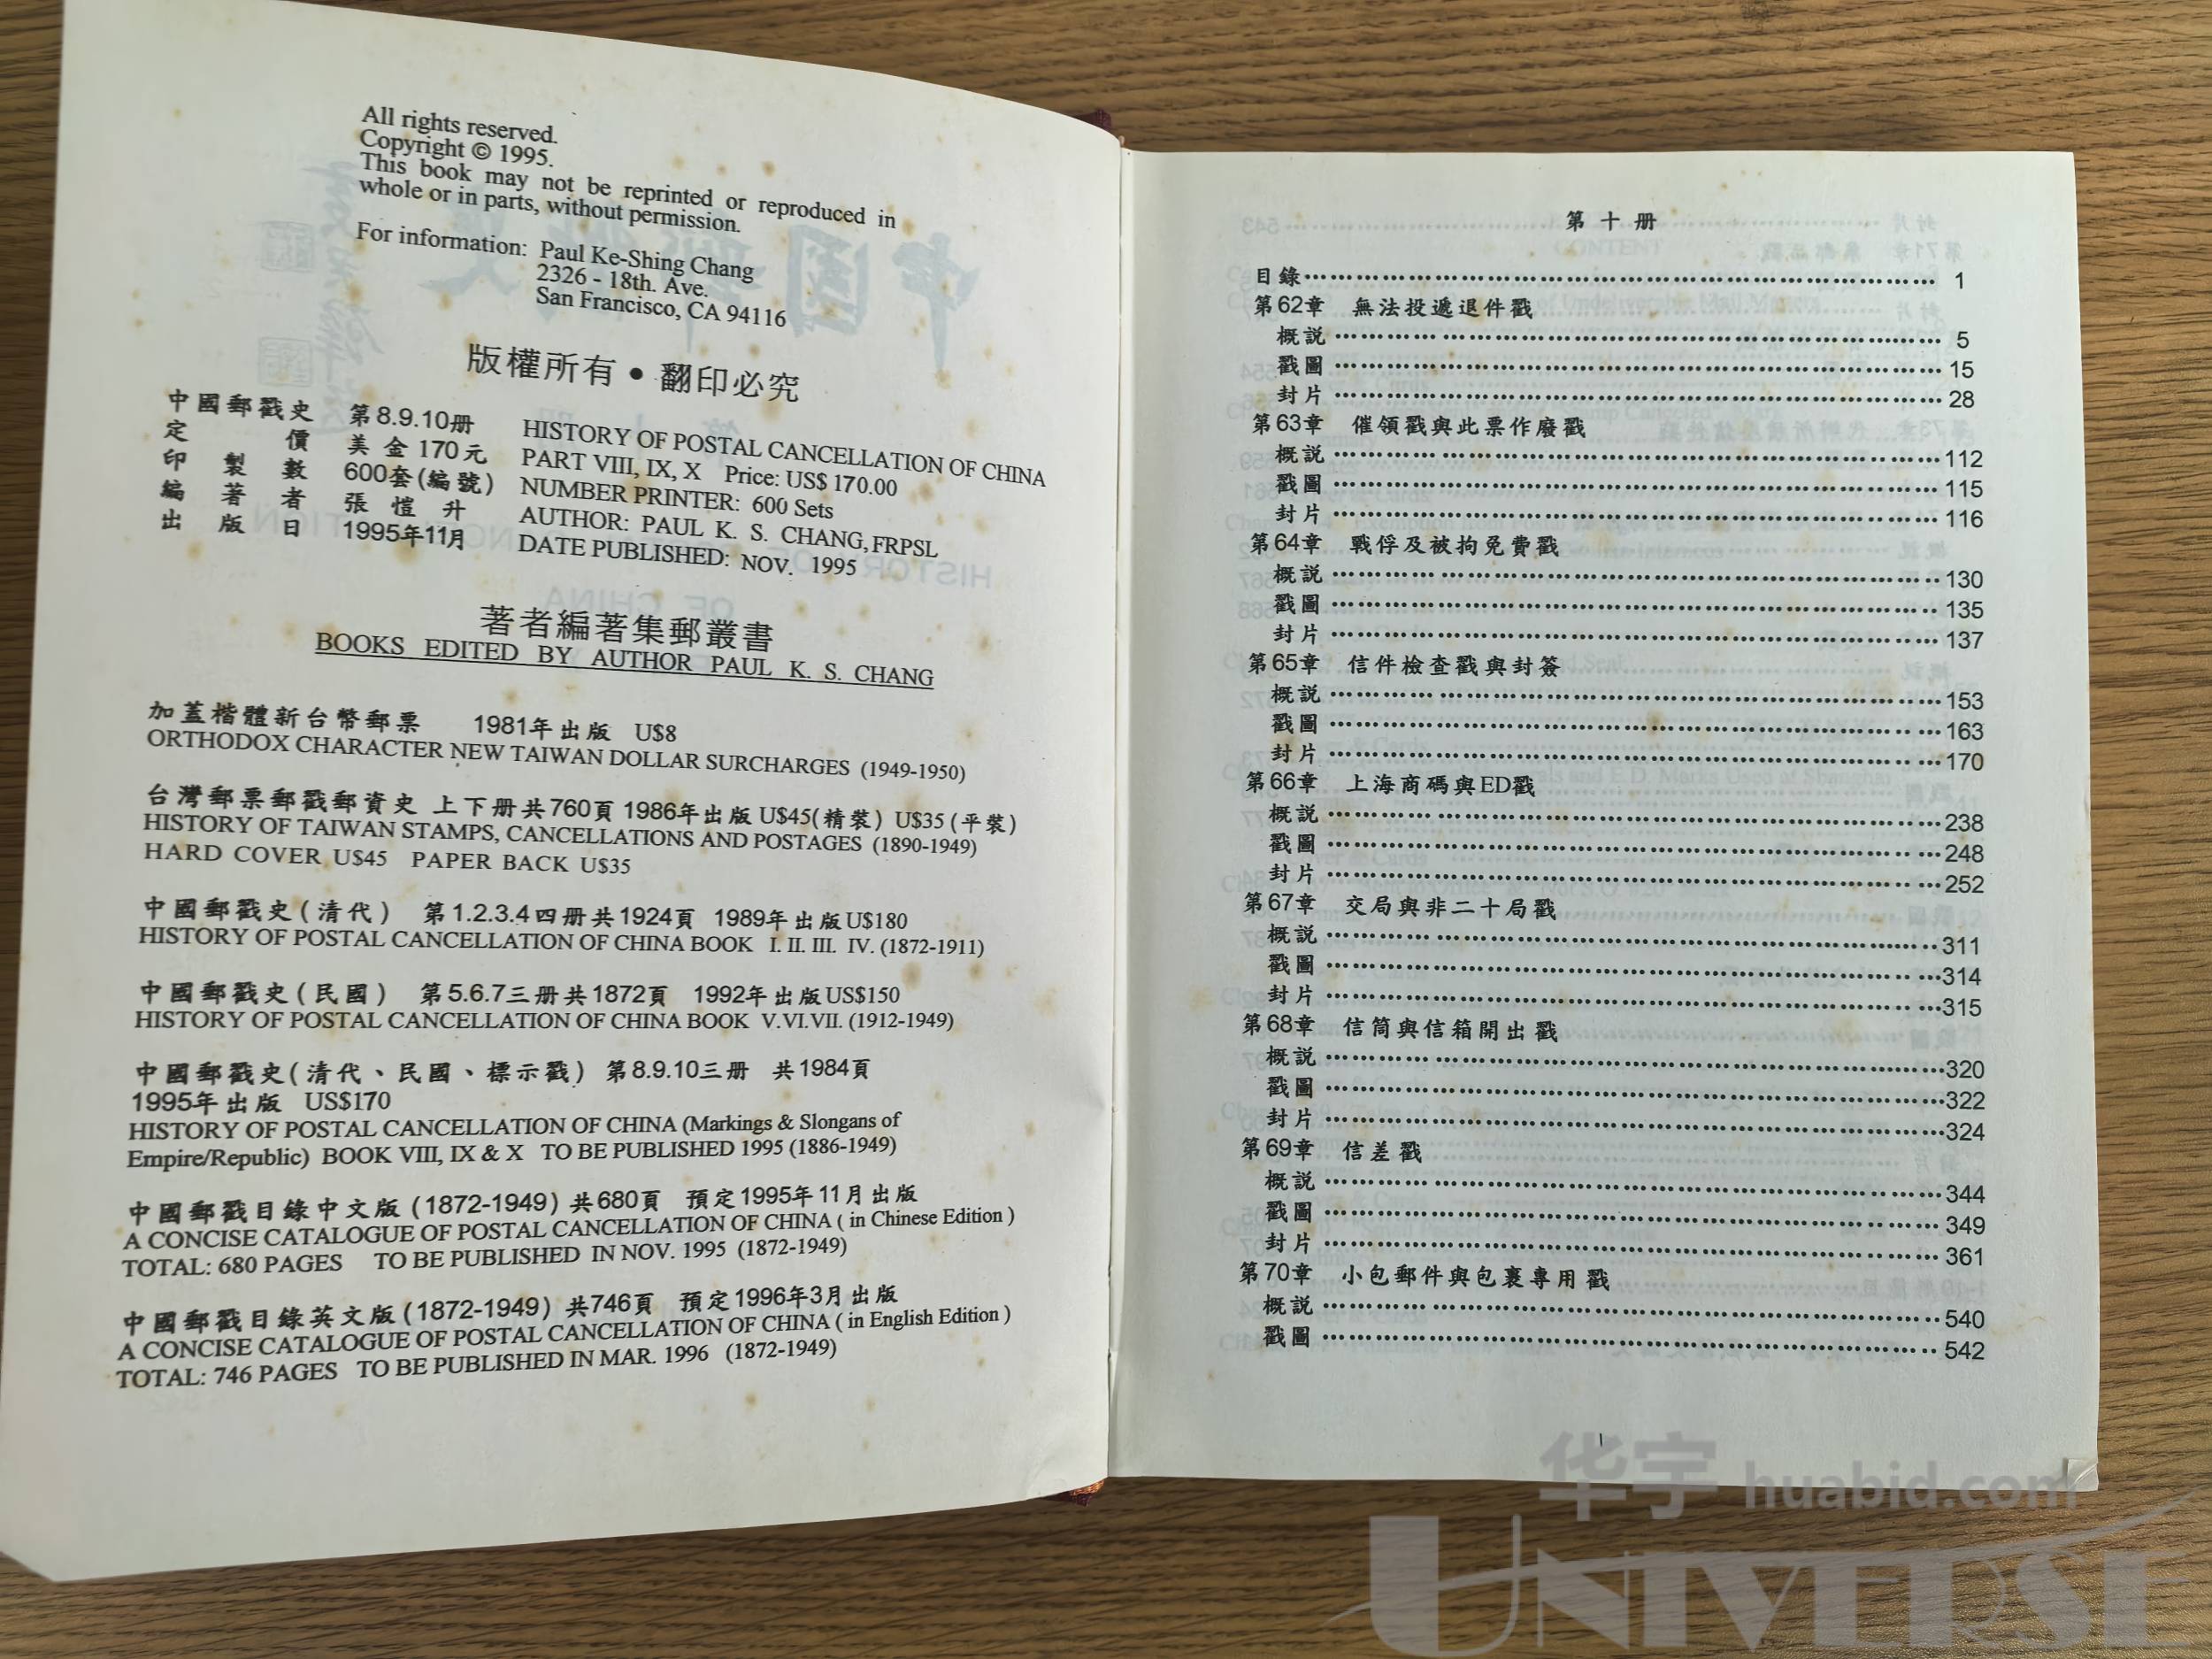 All rights reserved.
Copyright © 1995.
This book may not be reprinted or reproduced in
whole or in parts, without permission.
For information: Paul Ke-Shing Chang
2326 - 18th. Ave.
San Francisco, CA 94116
版權所有•翻印必究
中國郵戳史 第8.9.10册
定價 美金170元
印製數 600套(編號)
編著者 張愷升
出版日 1995年11月
HISTORY OF POSTAL CANCELLATION OF CHINA
PART VIII, IX, X Price: US$ 170.00
NUMBER PRINTER: 600 Sets
AUTHOR: PAUL K. S. CHANG, FRPSL
DATE PUBLISHED: NOV. 1995
著者編著集郵叢書
BOOKS EDITED BY AUTHOR PAUL K. S. CHANG
加蓋楷體新台幣郵票 1981年出版 U$8
ORTHODOX CHARACTER NEW TAIWAN DOLLAR SURCHARGES (1949-1950)
台灣郵票郵戳郵資史 上下册共760頁 1986年出版 U$45(精裝) U$35(平裝)
HISTORY OF TAIWAN STAMPS, CANCELLATIONS AND POSTAGES (1890-1949)
HARD COVER U$45 PAPER BACK U$35
中國郵戳史(清代) 第1.2.3.4四册共1924頁 1989年出版U$180
HISTORY OF POSTAL CANCELLATION OF CHINA BOOK I. II. III. IV. (1872-1911)
中國郵戳史(民國) 第5.6.7三册共1872頁 1992年出版US$150
HISTORY OF POSTAL CANCELLATION OF CHINA BOOK V.VI.VII. (1912-1949)
中國郵戳史(清代、民國、標示戳) 第8.9.10三册 共1984頁
1995年出版 US$170
HISTORY OF POSTAL CANCELLATION OF CHINA (Markings & Slongans of
Empire/Republic) BOOK VIII, IX & X TO BE PUBLISHED 1995 (1886-1949)
中國郵戳目錄中文版(1872-1949)共680頁 預定1995年11月出版
A CONCISE CATALOGUE OF POSTAL CANCELLATION OF CHINA ( in Chinese Edition )
TOTAL: 680 PAGES TO BE PUBLISHED IN NOV. 1995 (1872-1949)
中國郵戳目錄英文版(1872-1949)共746頁 預定1996年3月出版
A CONCISE CATALOGUE OF POSTAL CANCELLATION OF CHINA ( in English Edition )
TOTAL: 746 PAGES TO BE PUBLISHED IN MAR. 1996 (1872-1949)
第十册
目錄 1
第62章 無法投遞退件戳
概説 5
戳圖 15
封片 28
第63章 催領戳與此票作廢戳
概説 112
戳圖 115
封片 116
第64章 戰俘及被拘免費戳
概説 130
戳圖 135
封片 137
第65章 信件檢查戳與封簽
概説 153
戳圖 163
封片 170
第66章 上海商碼與ED戳
概説 238
戳圖 248
封片 252
第67章 交局與非二十局戳
概説 311
戳圖 314
封片 315
第68章 信筒與信箱開出戳
概説 320
戳圖 322
封片 324
第69章 信差戳
概説 344
戳圖 349
封片 361
第70章 小包郵件與包裹專用戳
概説 540
戳圖 542
1
华宇 huabid.com
UNIVERSE